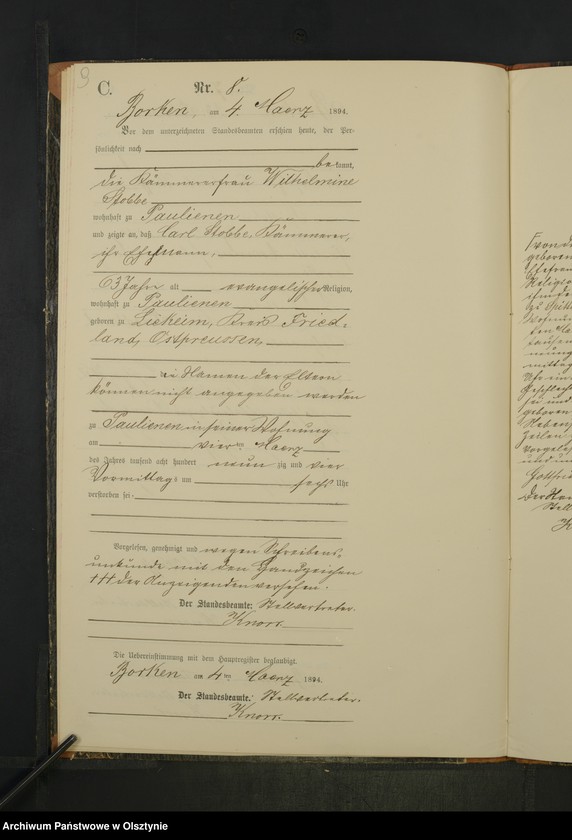 9
C.
Nr. 8.
Borken, am 4. Maerz 1894.
Vor dem unterzeichneten Standesbeamten erschien heute, der Per-
sönlichkeit nach
bekannt,
die Kämmererfrau Wilhelmine
Stobbe
wohnhaft zu Paulienen
und zeigte an, daß Carl Stobbe, Kämmerer,
ihr Ehemann,
63 Jahr alt evangelischer Religion,
wohnhaft zu Paulienen
geboren zu Liekeim, Kreis Fried-
land, Ostpreussen,
die Namen der Eltern
können nicht angegeben werden
zu Paulienen in seiner Wohnung
am vierten Maerz
des Jahres tausend acht hundert neunzig und vier
Vormittags um sechs Uhr
verstorben sei
Vorgelesen, genehmigt und wegen Schreibens-
unkunde mit den Handzeichen
††† der Anzeigenden versehen.
Der Standesbeamte: Stellvertreter.
Knorr.
Die Uebereinstimmung mit dem Hauptregister beglaubigt.
Borken am 4ten Maerz 1894.
Der Standesbeamte. Stellvertreter.
Knorr.
von d
geboren
Ehefrau
Religio
zu
Wohnu
tausen
mittag
Uhr ein
Geschlech
sei und
geboren
Neben
Zeilen
Vorgele
und un
Gottfrie
Der Sta
Stell
K
Archiwum Państwowe w Olsztynie